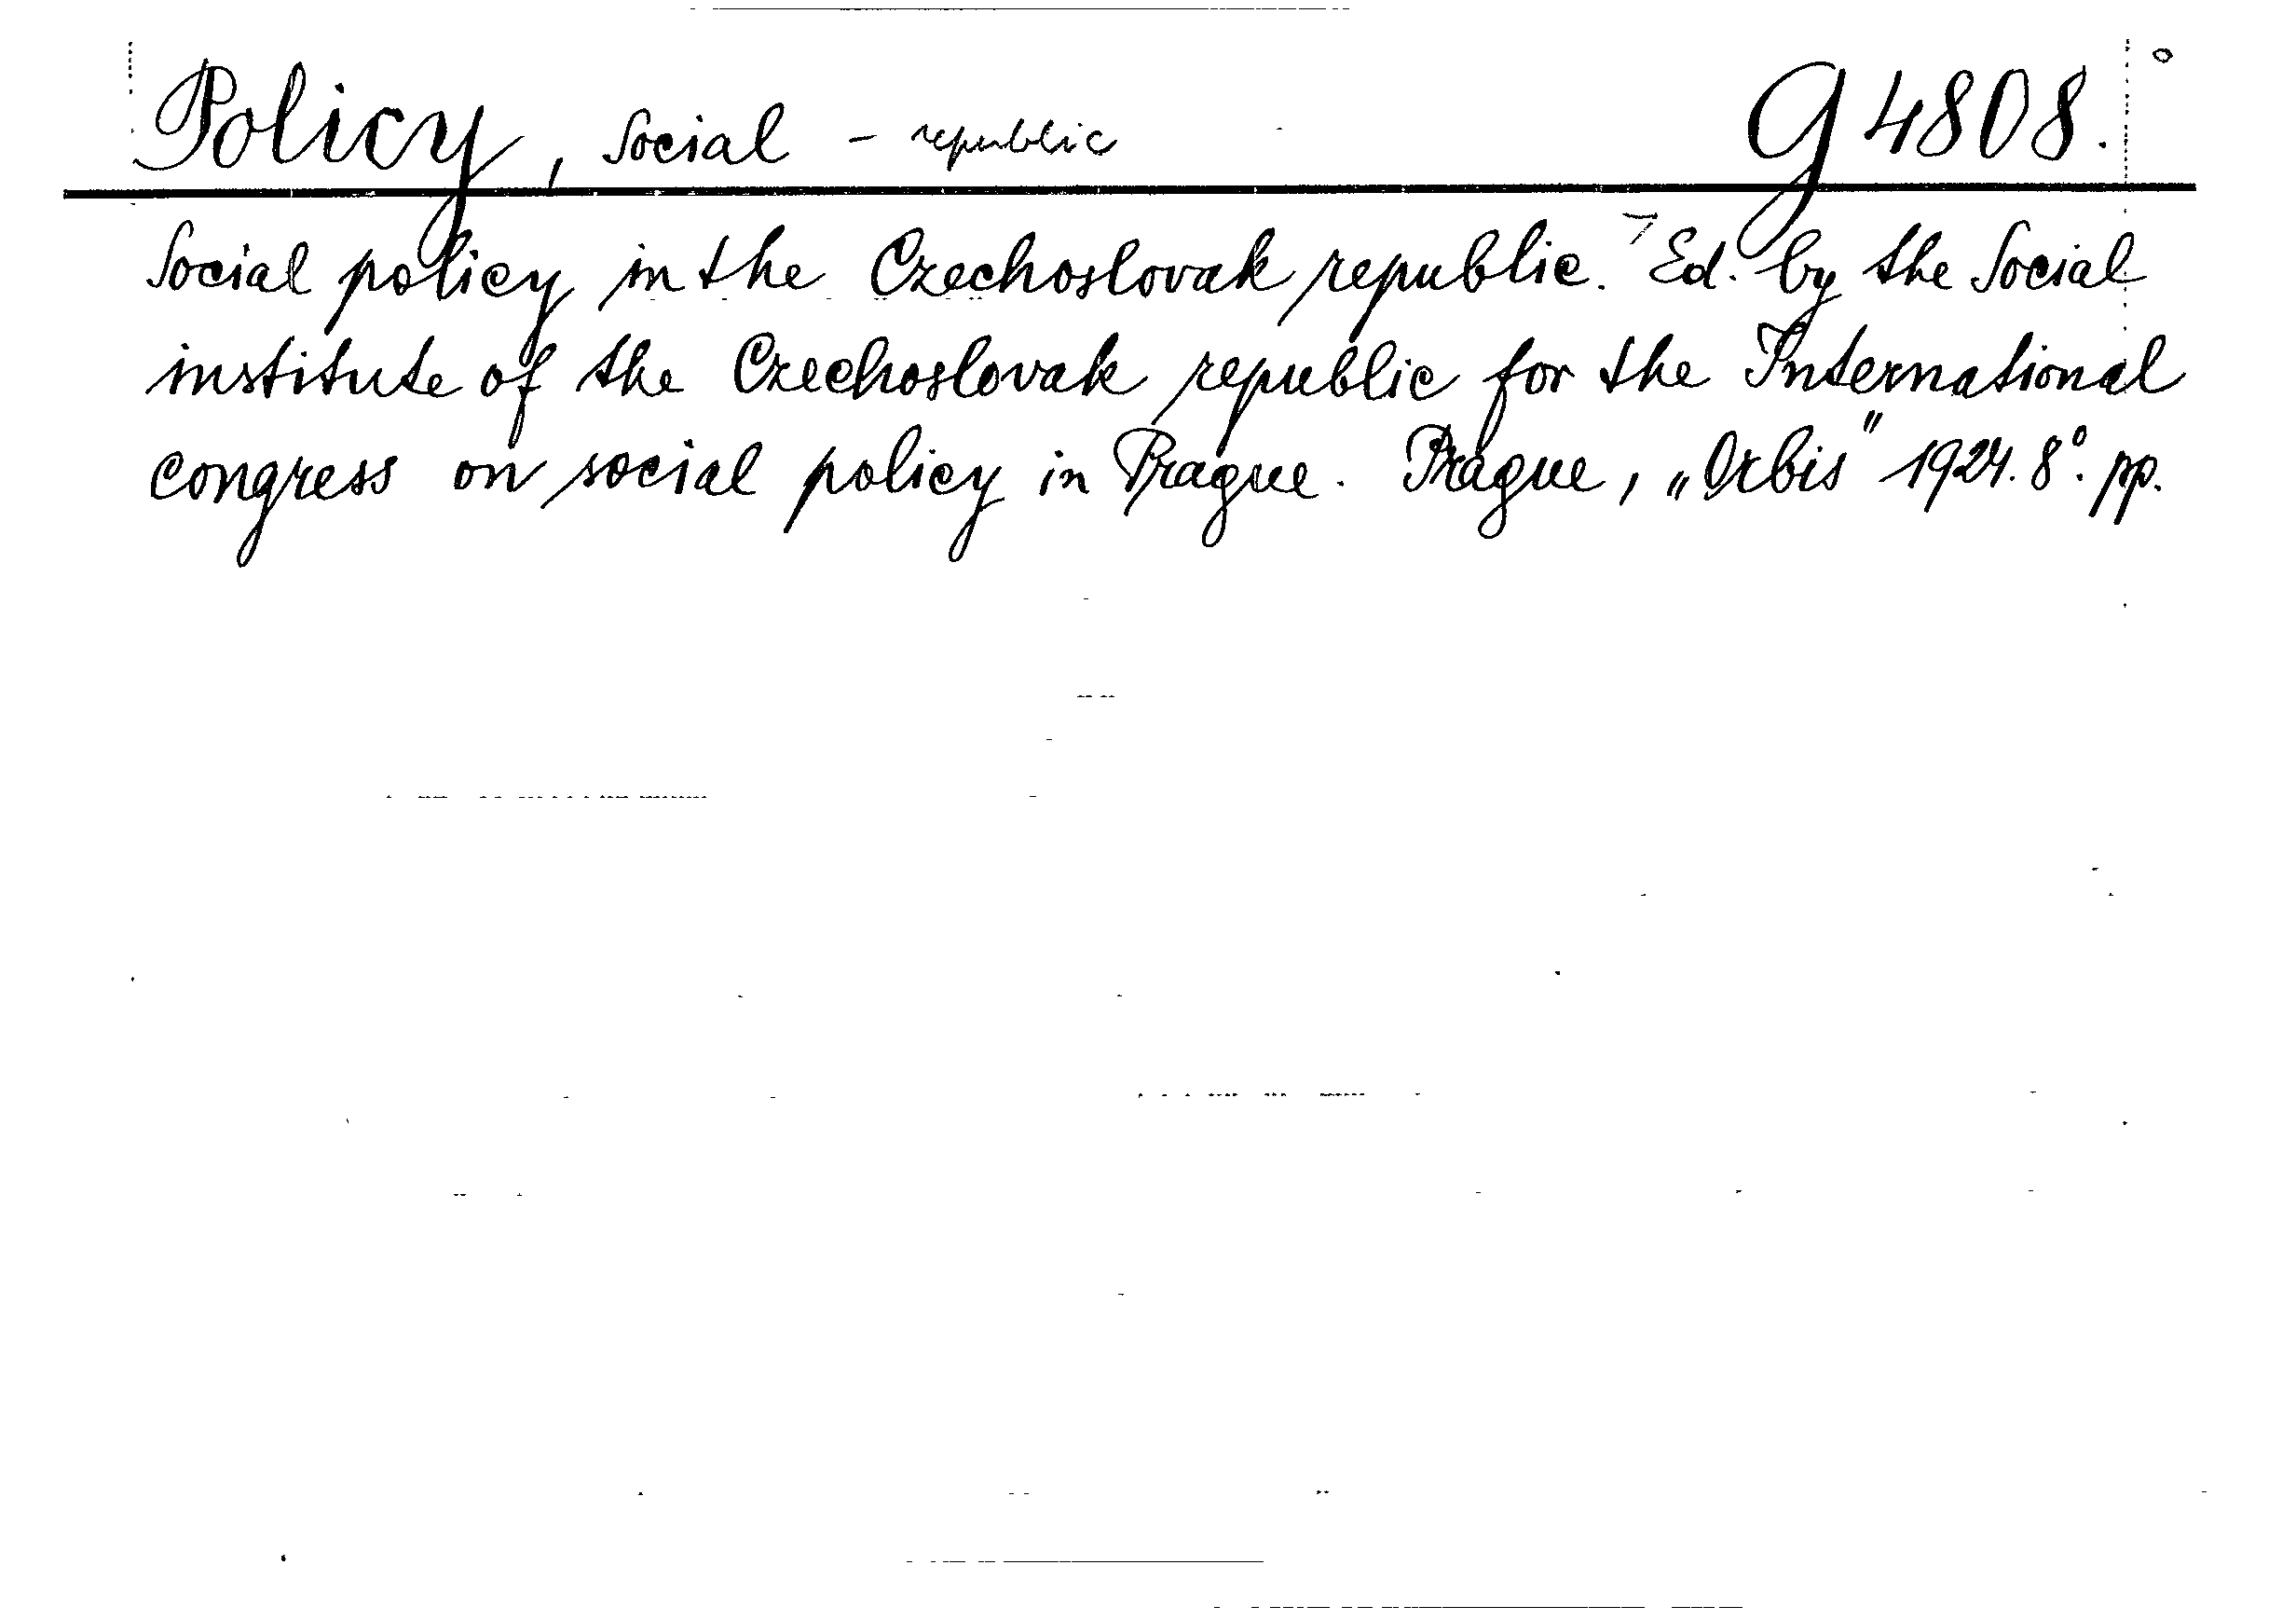 Policy, Social - republic g 4808.
Social policy in the Czechoslovak republic. Ed. by the Social
institute of the Czechoslovak republic for the International
congress on social policy in Prague. Prague, „Orbis" 1924. 8°. pp.